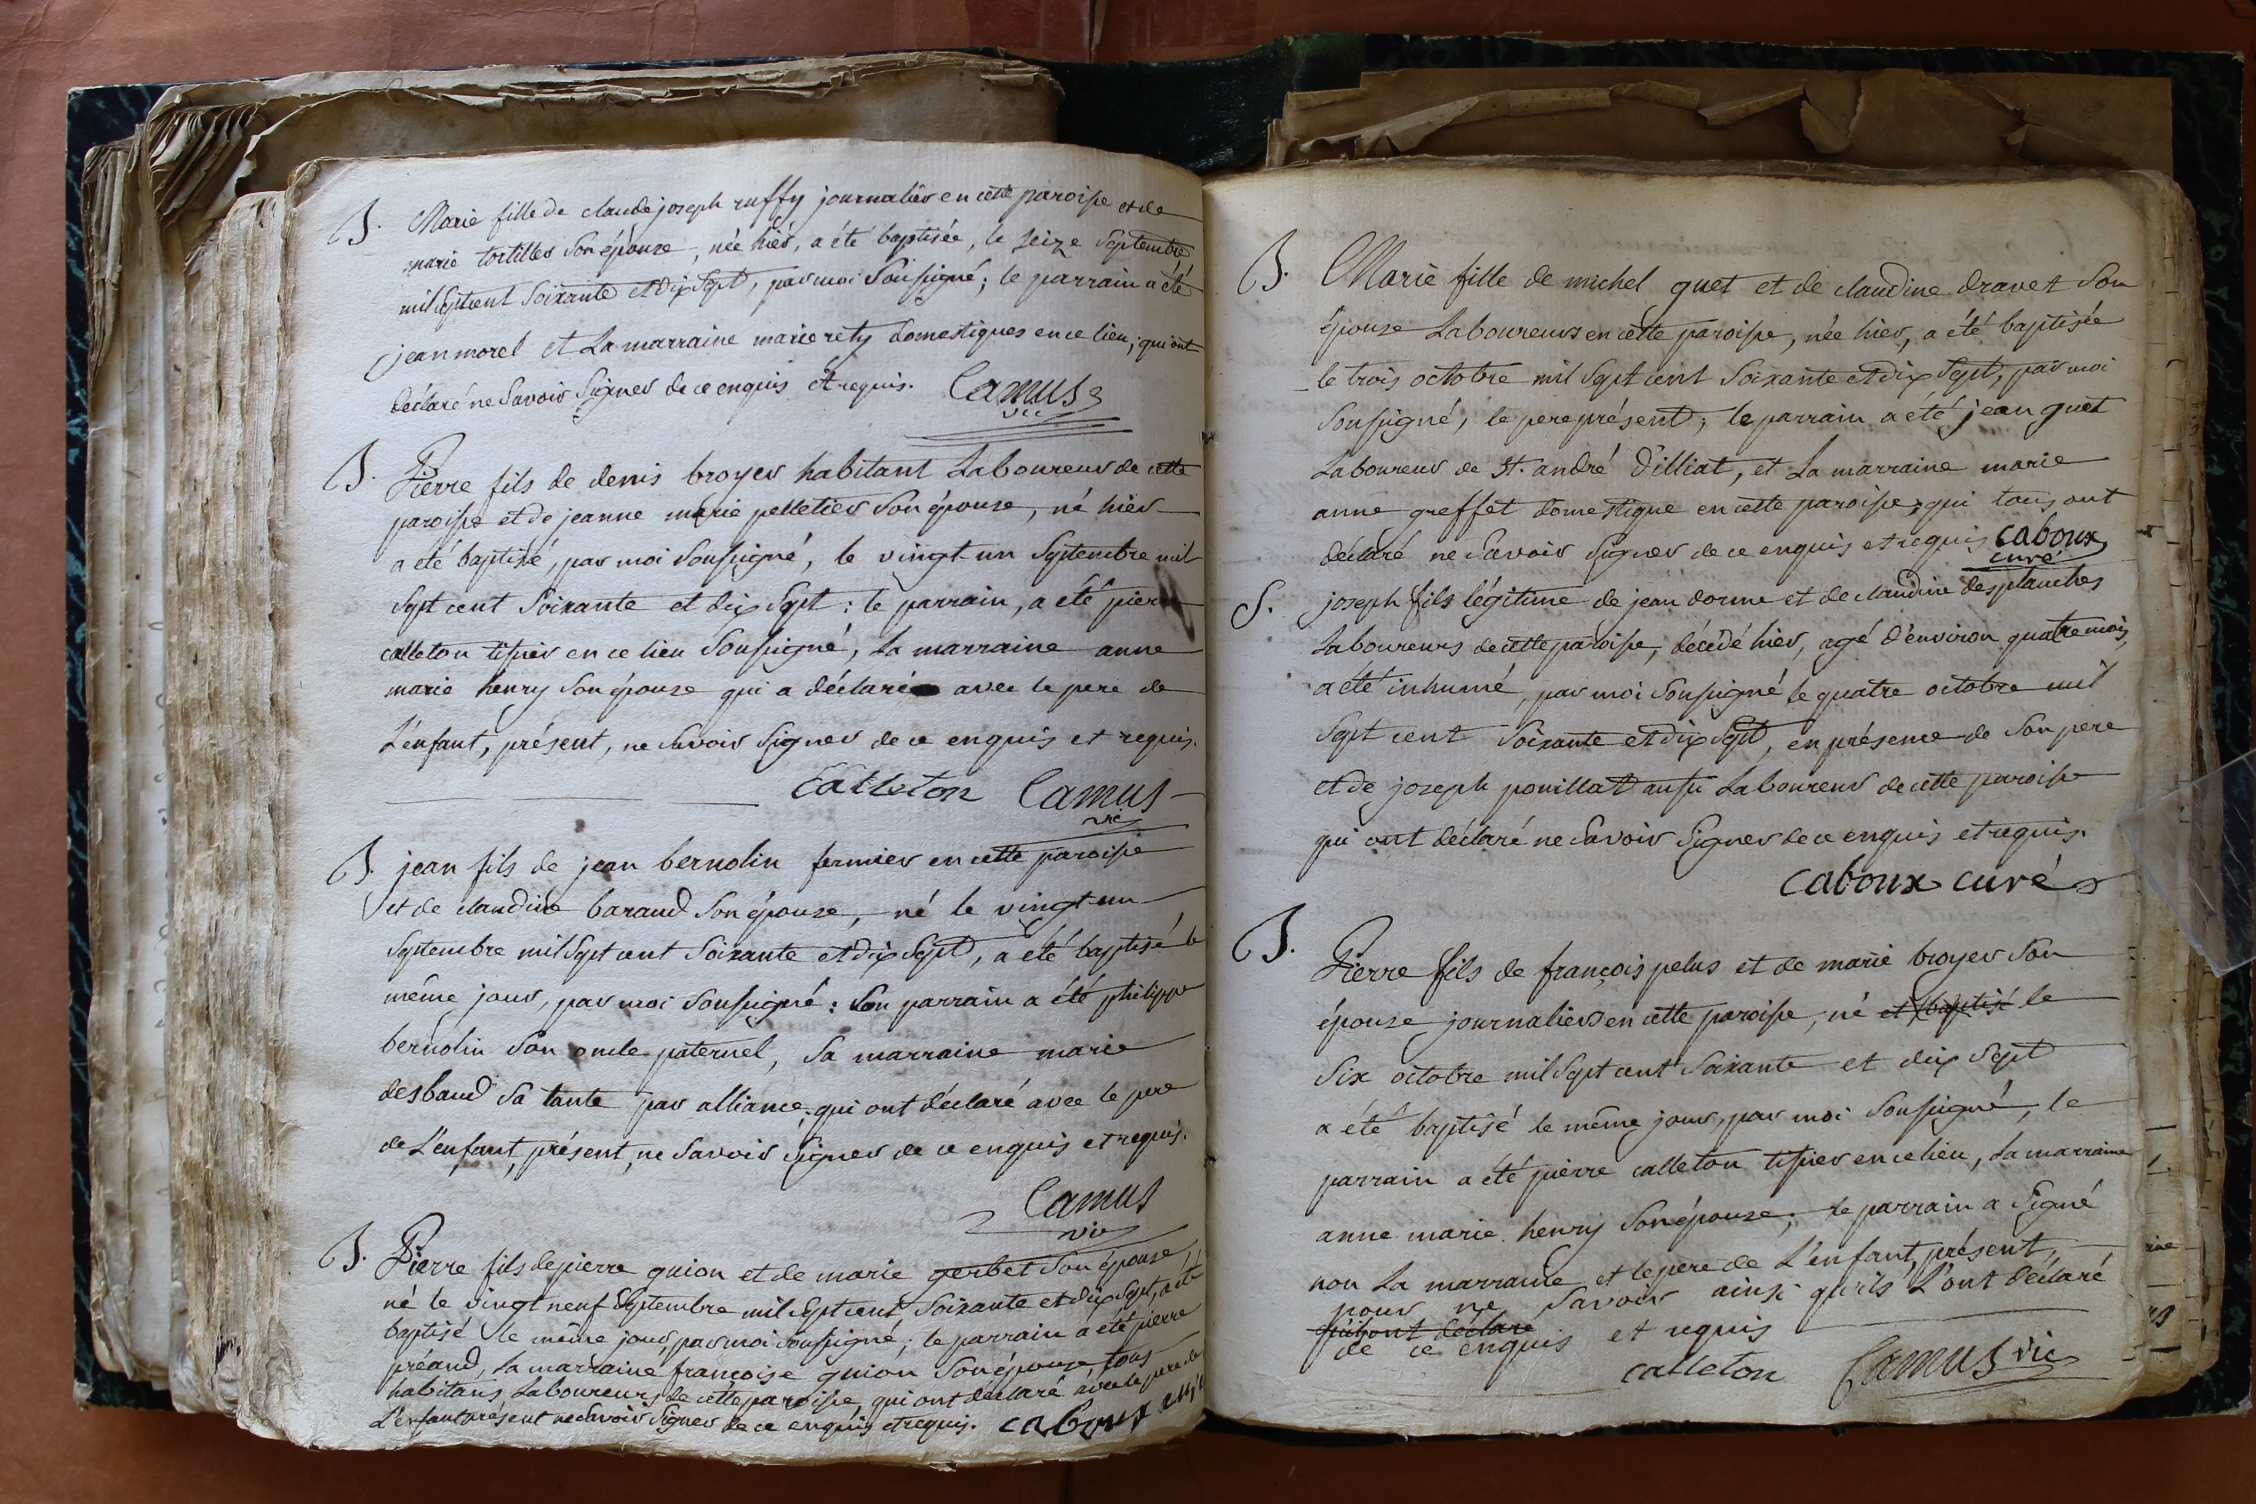 B. Marie fille de claude joseph ruffy journalier en cette paroisse et de
marie tortillet son épouse, née hier, a été baptisée, le seize septembre
mil sept cent soixante et dix sept, par moi soussigné; le parrain a été
jean morel et la marraine marie rety domestiques en ce lieu; qui ont
déclaré ne savoir signer de ce enquis et requis. Camus
vic
B. Pierre fils de denis broyer habitant laboureur de cette
paroisse et de jeanne marie pelletier son épouse, né hier
a été baptisé, par moi soussigné, le vingt un septembre mil
sept cent soixante et dix sept: le parrain, a été pierre
calleton tissier en ce lieu soussigné, la marraine anne
marie henry son épouse qui a déclaré avec le pere de
l'enfant, présent, ne savoir signer de ce enquis et requis.
Calleton Camus
vic
B. jean fils de jean bernolin fermier en cette paroisse
et de claudine baraud son épouse, né le vingt un
septembre mil sept cent soixante et dix sept, a été baptisé le
même jour, par moi soussigné: son parrain a été philippe
bernolin son oncle paternel, sa marraine marie
desbaud sa tante par alliance; qui ont déclaré avec le pere
de l'enfant, présent, ne savoir signer de ce enquis et requis.
Camus
vic
B. Pierre fils de pierre guion et de marie gerbet son épouse,
né le vingt neuf septembre mil sept cent soixante et dix sept, a été
baptisé le même jour, par moi soussigné; le parrain a été pierre
préaud, la marraine françoise guion son épouse, tous
habitans laboureurs de cette paroisse, qui ont déclaré avec le pere de
l'enfant présent ne savoir signer de ce enquis et requis. caboux curé
B. Marie fille de michel guet et de claudine dravet son
épouse laboureurs en cette paroisse, née hier, a été baptisée
le trois octobre mil sept cent soixante et dix sept, par moi
soussigné, le pere présent; le parrain a été jean guet
laboureur de St. andré d'illiat, et la marraine marie
anne greffet domestique en cette paroisse; qui tous ont
déclaré ne savoir signer de ce enquis et requis caboux
curé
S. joseph fils légitime de jean dorme et de claudine desplanches
laboureurs de cette paroisse, décédé hier, agé d'environ quatre mois,
a été inhumé, par moi soussigné le quatre octobre mil
sept cent soixante et dix sept, en présence de son pere
et de joseph pouillat aussi laboureur de cette paroisse
qui ont déclaré ne savoir signer de ce enquis et requis.
caboux curé
B. Pierre fils de françois pelus et de marie broyer son
épouse journaliers en cette paroisse, né et baptisé le
six octobre mil sept cent soixante et dix sept
a été baptisé le même jour, par moi soussigné, le
parrain a été pierre calleton tissier en ce lieu, la marraine
anne marie henry son épouse; le parrain a signé
non la marraine et le pere de l'enfant, présent,
pour ne savoir ainsi qu'ils l'ont déclaré
qu'ils ont déclaré
de ce enquis et requis
calleton Camus vic